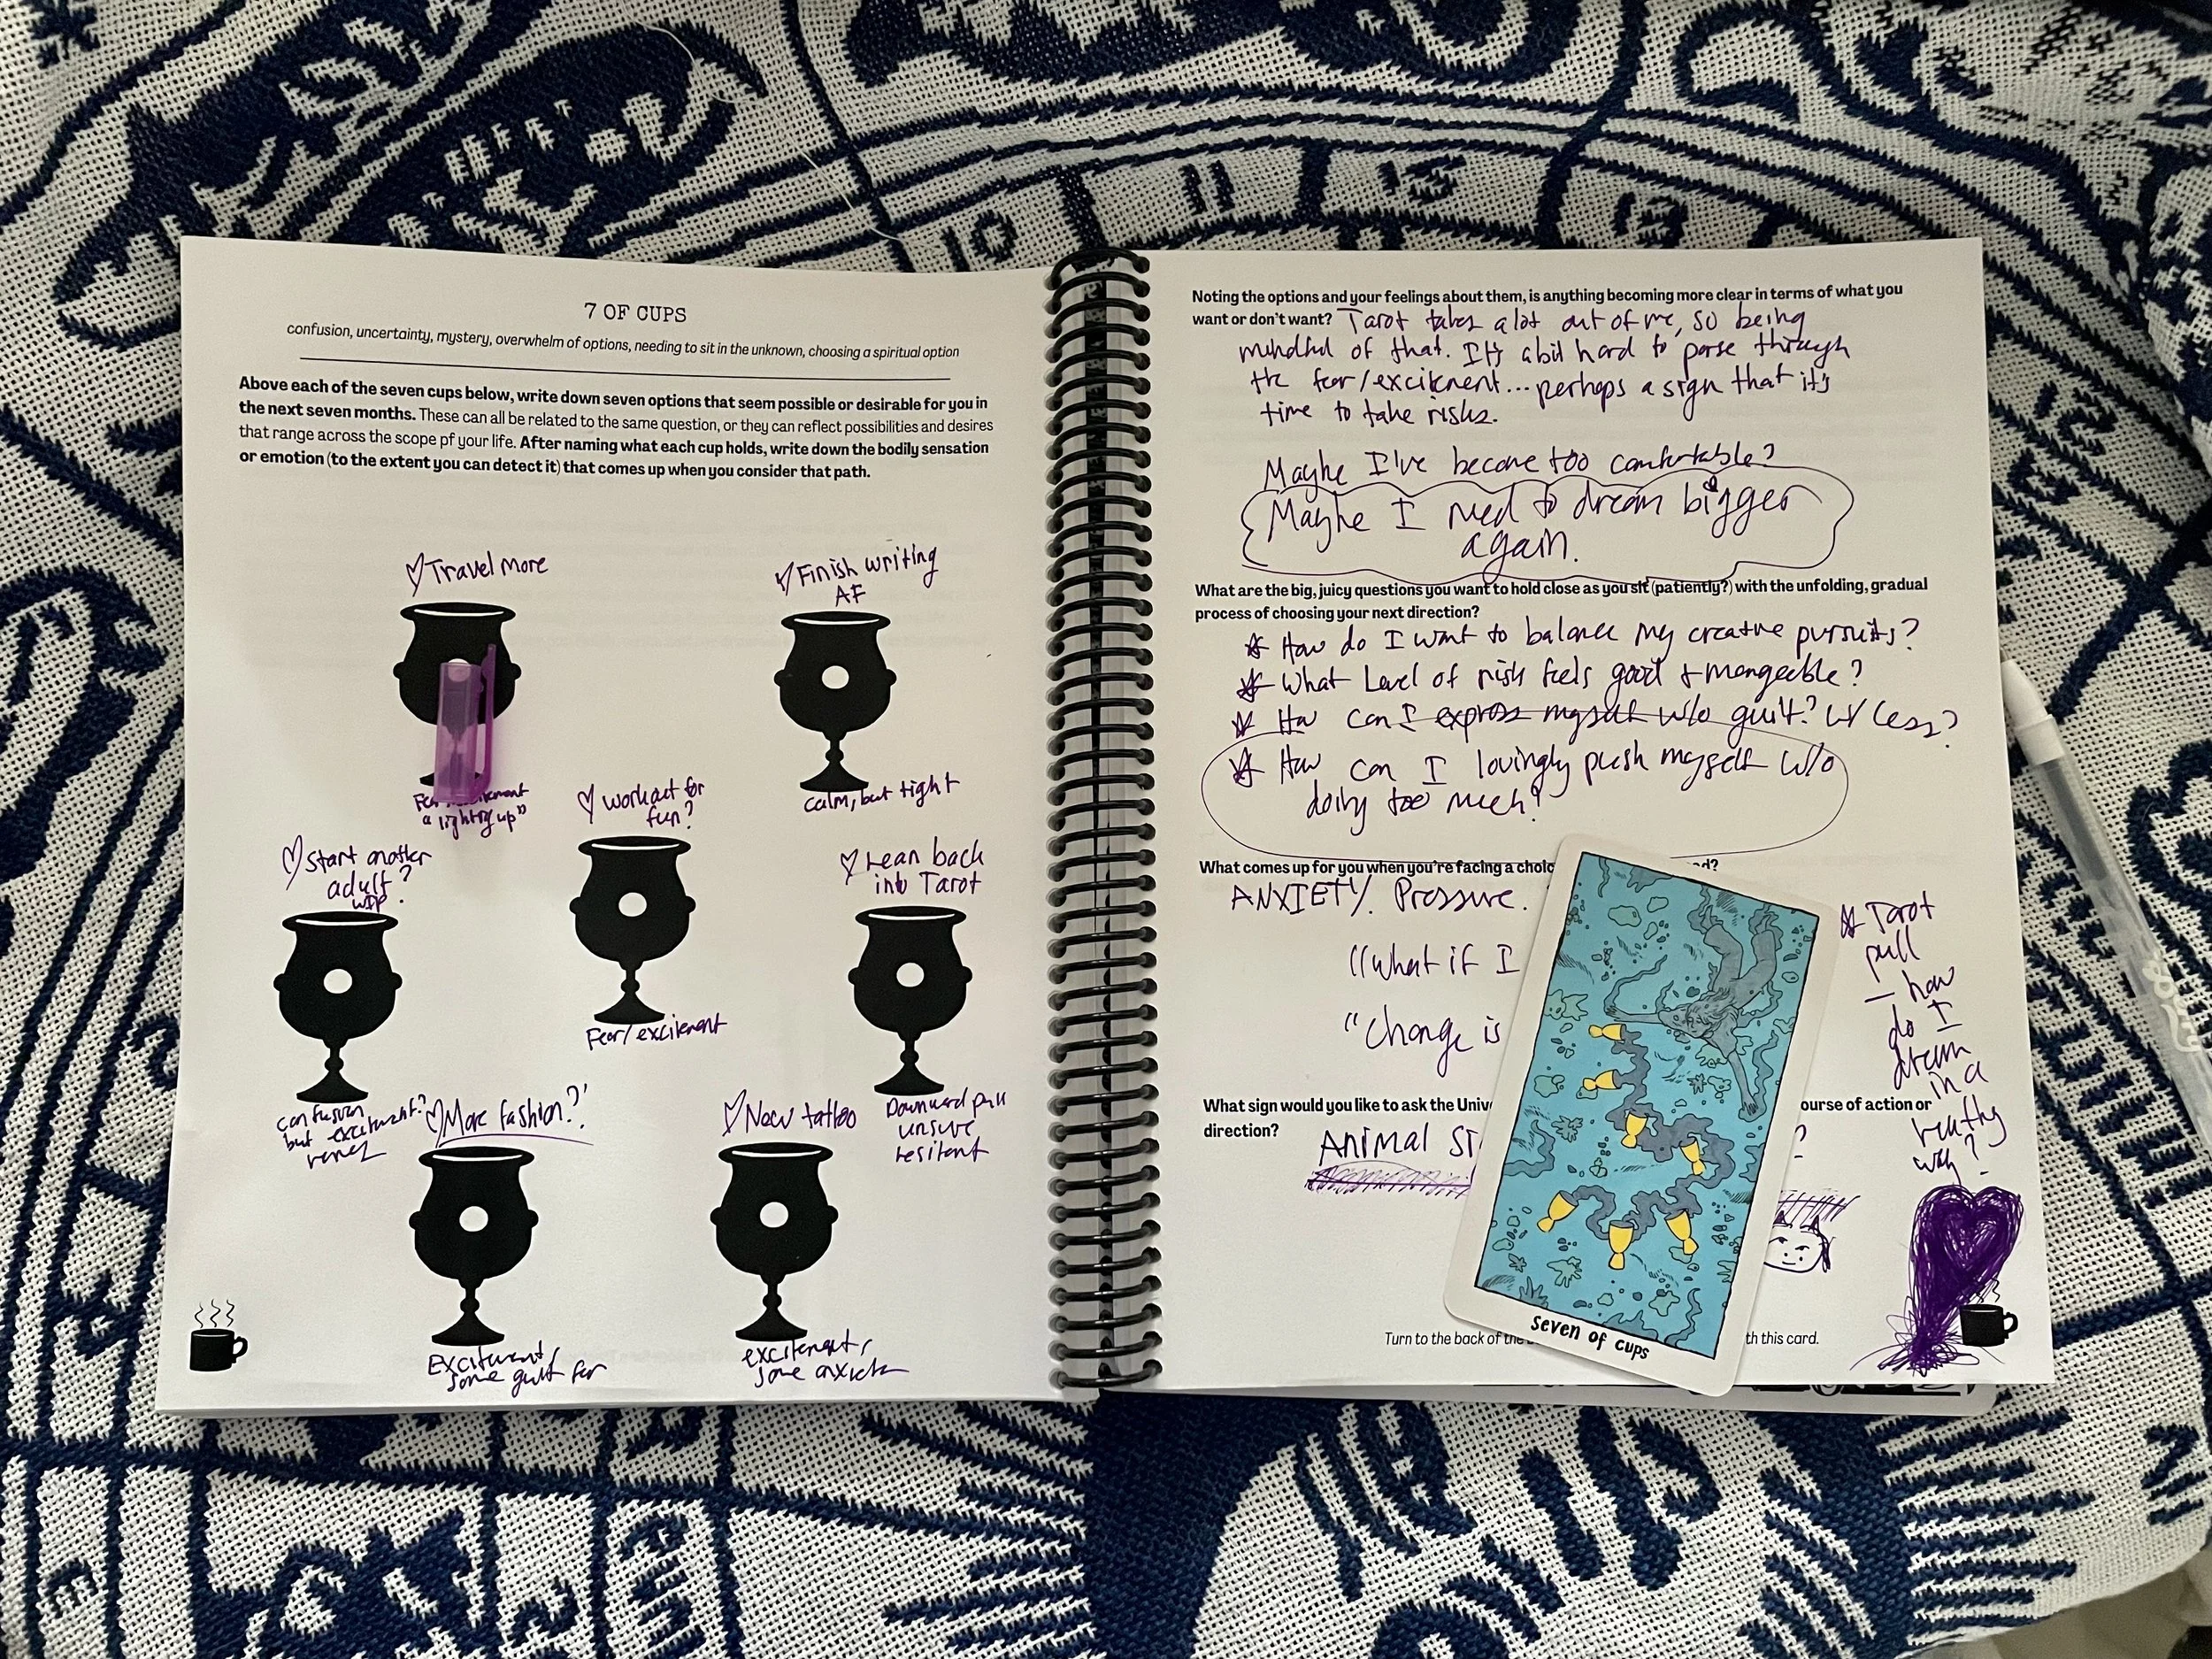 7 OF CUPS
confusion, uncertainty, mystery, overwhelm of options, needing to sit in the unknown, choosing a spiritual option
Above each of the seven cups below, write down seven options that seem possible or desirable for you in
the next seven months. These can all be related to the same question, or they can reflect possibilities and desires
that range across the scope pf your life. After naming what each cup holds, write down the bodily sensation
or emotion (to the extent you can detect it) that comes up when you consider that path.
Travel more
a lighting up"
Finish writing
AF
calm, but tight
workout for
fun?
Fear/excitement
Start another
adult?
WIP
confusion
but excitement?
Lean back
into Tarot
Downward pull
unsure
resitent
More fashion?
Excitement,
some guilt for
New tattoo
excitement,
some
Noting the options and your feelings about them, is anything becoming more clear in terms of what you
want or don't want? Tarot takes a lot out of me, so being
mindful of that. It's a bit hard to parse through
the fear/excitement... perhaps a sign that it's
time to take risks.
Maybe I've become too comfortable?
Maybe I need to dream bigger
again.
What are the big, juicy questions you want to hold close as you sit (patiently?) with the unfolding, gradual
process of choosing your next direction?
How do I want to balance my creative pursuits?
What Level of risk feels good + mangeable?
How can I express myself w/o guilt? w/ less?
How can I lovingly push myself w/o
doing too much?
What comes up for you when you're facing a
ANXIETY. Pressure.
"What if I
"Change is
What sign would you like to ask the
ourse of action or
direction?
Animal
?
Tarot
pull
— how
do I
dream
in a
healthy
way?
Turn to the back of the
th this card.
Seven of cups
10
11